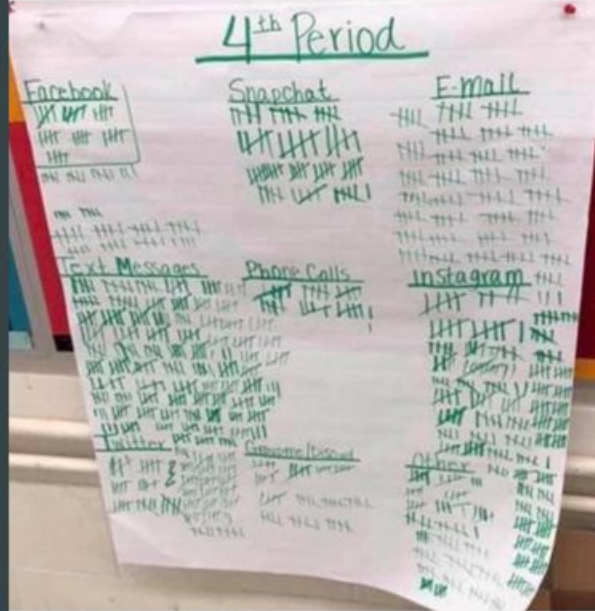 4th Period
Facebook
Snapchat
E-mail
Text Messages
Phone Calls
Instagram
Twitter
Other